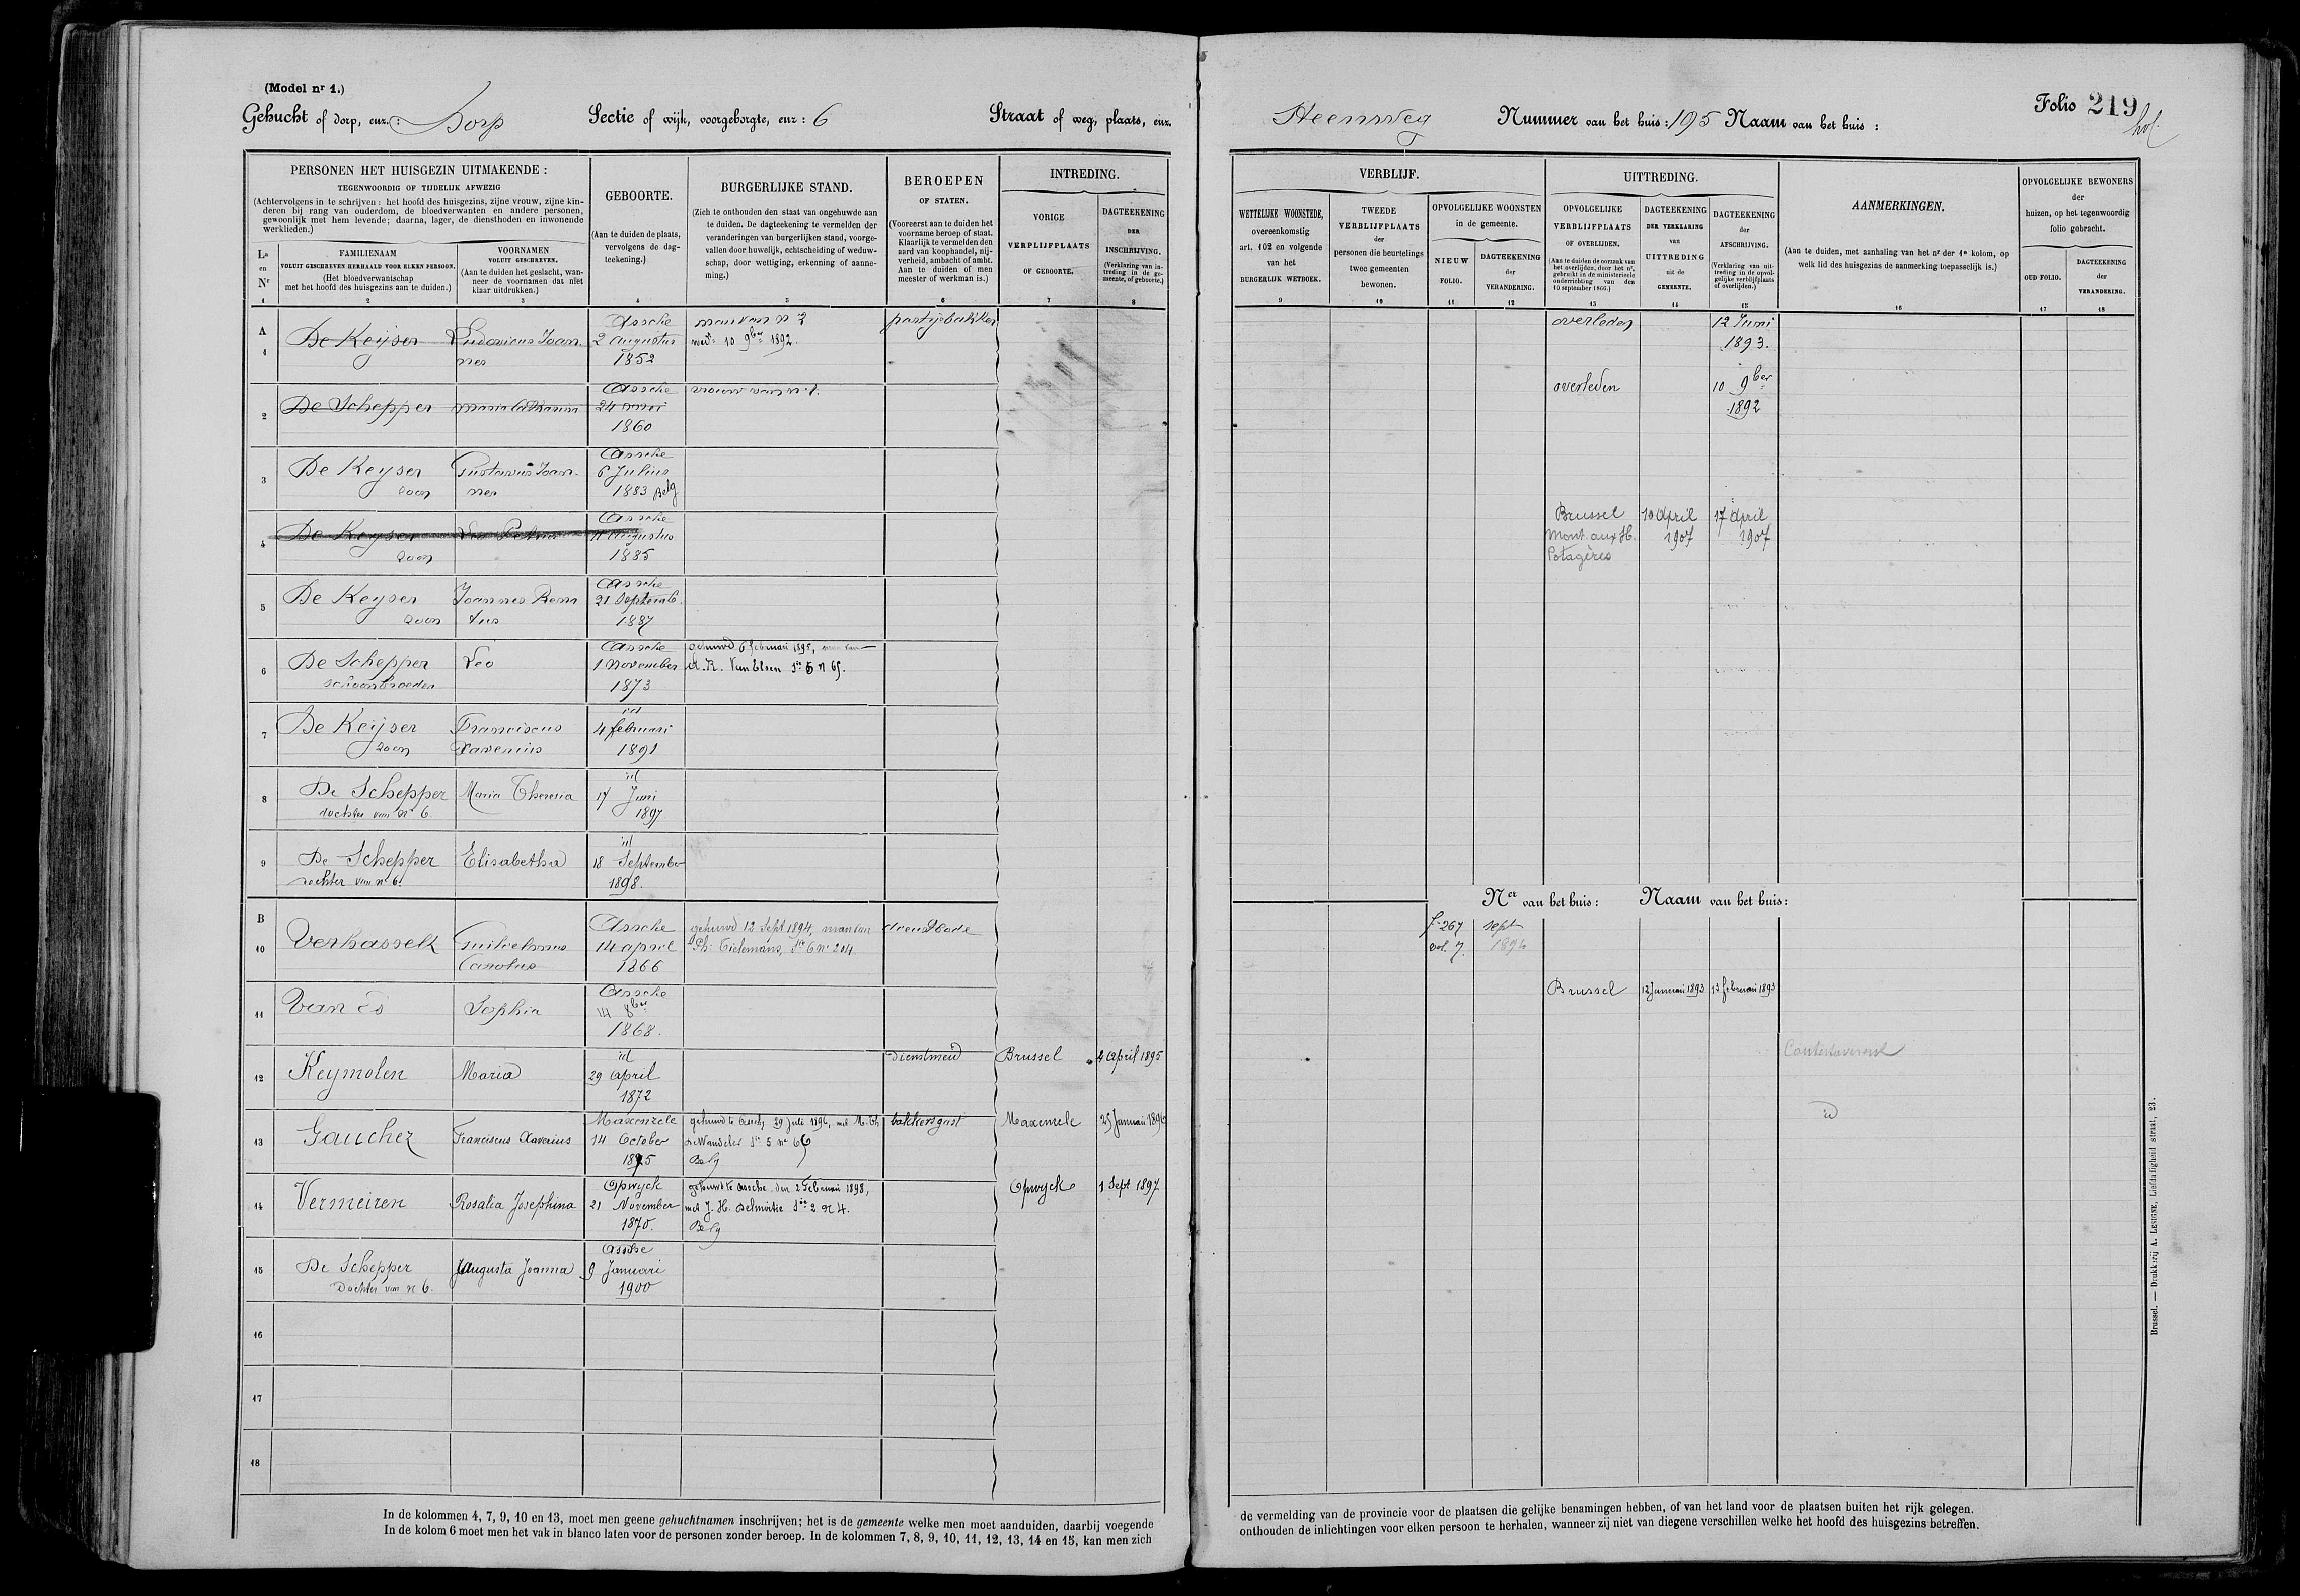 (Model nr 1.)
Gehucht of dorp, enz.: Dorp Sectie of wijk, voorgeborgte, enz: 6 Straat of weg, plaats, enz.
PERSONEN HET HUISGEZIN UITMAKENDE :
TEGENWOORDIG OF TIJDELIJK AFWEZIG
(Achtervolgens in te schrijven : het hoofd des huisgezins, zijne vrouw, zijne kin-
deren bij rang van ouderdom, de bloedverwanten en andere personen,
gewoonlijk met hem levende; daarna, lager, de diensthoden en inwonende
werklieden.)
La en Nr
1
FAMILIENAAM
VOLUIT GESCHREVEN HERHAALD VOOR ELKEN PERSOON.
(Het bloedverwantschap
met het hoofd des huisgezins aan te duiden.)
2
VOORNAMEN
VOLUIT GESCHREVEN.
(Aan te duiden het geslacht, wan-
neer de voornamen dat niet
klaar uitdrukken.)
3
GEBOORTE.
(Aan te duiden de plaats,
vervolgens de dag-
teekening.)
4
BURGERLIJKE STAND.
(Zich te onthouden den staat van ongehuwde aan
te duiden. De dagteekening te vermelden der
veranderingen van burgerlijken stand, voorge-
vallen door huwelijk, echtscheiding of weduw-
schap, door wettiging, erkenning of aanne-
ming.)
5
BEROEPEN
OF STATEN.
(Vooreerst aan te duiden het
voorname beroep of staat.
Klaarlijk te vermelden den
aard van koophandel, nij-
verheid, ambacht of ambt.
Aan te duiden of men
meester of werkman is.)
6
INTREDING.
VORIGE
VERPLIJFPLAATS
OF GEBOORTE.
7
DAGTEEKENING
DER
INSCHRIJVING.
(Verklaring van in-
treding in de ge-
meente, of geboorte.)
8
A
1 De Keyser Ludovicus Joan-
nes
Assche
2 Augustus
1852
man van n 2
wedr 10 9ber 1892.
pasteijebakker
2 De Schepper Maria Catharina
Assche
24 mei
1860
vrouw van n 1.
3 De Keyser Gustavus Joan-
zoon nes
Assche
6 Julius
1883 Belg
4 De Keyser
zoon
Assche
11 augustus
1885
5 De Keyser Joannes Rena
zoon tus
Assche
21 Septemb.
1887
6 De Schepper Leo
schoonbroeder
Assche
1 November
1873
gehuwd 6 februari 1895, man van
Van Elsen Sie 5 n 65.
7 De Keyser Franciscus
zoon Xaverius
id
4 februari
1891
8 De Schepper Maria Theresia
dochter van n 6.
id
17 Juni
1897
9 De Schepper Elisabetha
dochter van n 6.
id
18 September
1898.
B
10 Verhasselt Guilielmus
Carolus
Assche
14 april
1866
gehuwd 12 Sept 1894, man van
Ph. Tielemans, Sie 6 nr 204.
dienstbode
11 Van Es Sophia
Assche
14 8ber
1868.
12 Keymolen Maria
id
29 April
1872
dienstmeid Brussel 4 April 1895
13 Gauchez Franciscus Xaverius
Maxenzele
14 October
1875
gehuwd te Assche, 29 Juli 1896, met M. Th
De Wandeler Sie 5 nr 66
Belg
bakkersgast Maxenzele 25 Januari 1896
14 Vermeiren Rosalia Josephina
Opwyck
21 November
1870.
gehuwd te Assche, den 2 Februari 1898,
met J. H. Delmoitie Sie 2 n 4.
Belg
Opwyck 1 Sept 1897
15 De Schepper Augusta Joanna
Dochter van n 6.
Assche
9 Januari
1900
16
17
18
In de kolommen 4, 7, 9, 10 en 13, moet men geene gehuchtnamen inschrijven; het is de gemeente welke men moet aanduiden, daarbij voegende
In de kolom 6 moet men het vak in blanco laten voor de personen zonder beroep. In de kolommen 7, 8, 9, 10, 11, 12, 13, 14 en 15, kan men zich
Steenweg Nummer van het huis: 195 Naam van het huis : Folio 219
VERBLIJF.
WETTELIJKE WOONSTEDE,
overeenkomstig
art. 102 en volgende
van het
BURGERLIJK WETBOEK.
9
TWEEDE
VERBLIJFPLAATS
der
personen die beurtelings
twee gemeenten
bewonen.
10
OPVOLGELIJKE WOONSTEN
in de gemeente.
NIEUW
FOLIO.
11
DAGTEEKENING
der
VERANDERING.
12
UITTREDING.
OPVOLGELIJKE
VERBLIJFPLAATS
OF OVERLIJDEN.
(Aan te duiden de oorzaak van
het overlijden, door het nr,
gebruikt in de ministerieele
onderrichting van den
10 september 1866.)
13
DAGTEEKENING
DER VERKLARING
van
UITTREDING
uit de
GEMEENTE.
14
DAGTEEKENING
der
AFSCHRIJVING.
(Verklaring van uit-
treding in de opvol-
gelijke verblijfplaats
of overlijden.)
15
AANMERKINGEN.
(Aan te duiden, met aanhaling van het nr der 1e kolom, op
welk lid des huisgezins de aanmerking toepasselijk is.)
16
OPVOLGELIJKE BEWONERS
der
huizen, op het tegenwoordig
folio gebracht.
OUD FOLIO.
17
DAGTEEKENING
der
VERANDERING.
18
overleden 12 Juni
1893.
overleden 10 9ber
1892
Brussel 10 April 17 April
Mont. aux H. 1907 1907
Potagères
Ner van het huis : Naam van het huis:
f 267 sept
vol. 7. 1894
Brussel 12 Januari 1893 13 februari 1893
id
Brussel. — Drukkerij A. Lesigne, Liefdadigheid straat, 23.
de vermelding van de provincie voor de plaatsen die gelijke benamingen hebben, of van het land voor de plaatsen buiten het rijk gelegen.
onthouden de inlichtingen voor elken persoon te herhalen, wanneer zij niet van diegene verschillen welke het hoofd des huisgezins betreffen.